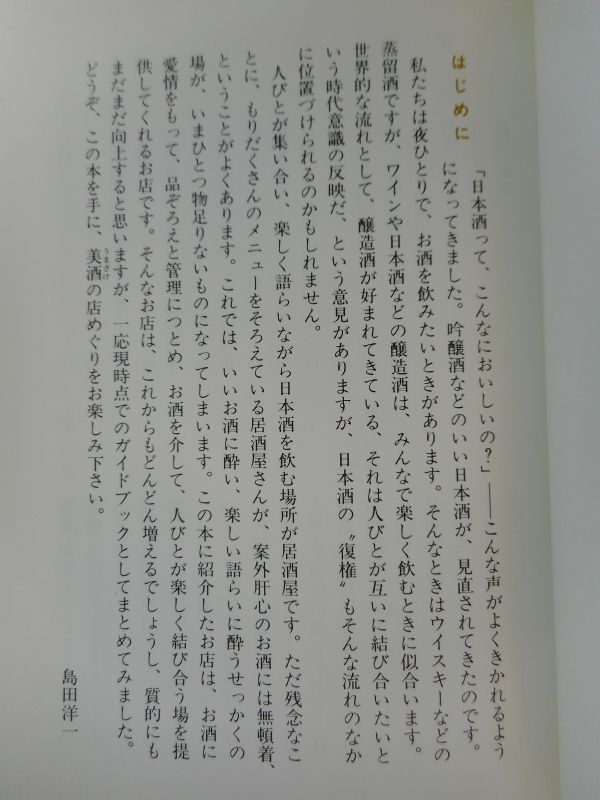 はじめに
「日本酒って、こんなにおいしいの?」――こんな声がよくきかれるよう
になってきました。吟醸酒などのいい日本酒が、見直されてきたのです。
私たちは夜ひとりで、お酒を飲みたいときがあります。そんなときはウイスキーなどの
蒸留酒ですが、ワインや日本酒などの醸造酒は、みんなで楽しく飲むときに似合います。
世界的な流れとして、醸造酒が好まれてきている、それは人びとが互いに結び合いたいと
いう時代意識の反映だ、という意見がありますが、日本酒の〝復権〟もそんな流れのなか
に位置づけられるのかもしれません。
人びとが集い合い、楽しく語らいながら日本酒を飲む場所が居酒屋です。ただ残念なこ
とに、もりだくさんのメニューをそろえている居酒屋さんが、案外肝心のお酒には無頓着、
ということがよくあります。これでは、いいお酒に酔い、楽しい語らいに酔うせっかくの
場が、いまひとつ物足りないものになってしまいます。この本に紹介したお店は、お酒に
愛情をもって、品ぞろえと管理につとめ、お酒を介して、人びとが楽しく結び合う場を提
供してくれるお店です。そんなお店は、これからもどんどん増えるでしょうし、質的にも
まだまだ向上すると思いますが、一応現時点でのガイドブックとしてまとめてみました。
うまざけ
どうぞ、この本を手に、美酒の店めぐりをお楽しみ下さい。
島田洋一